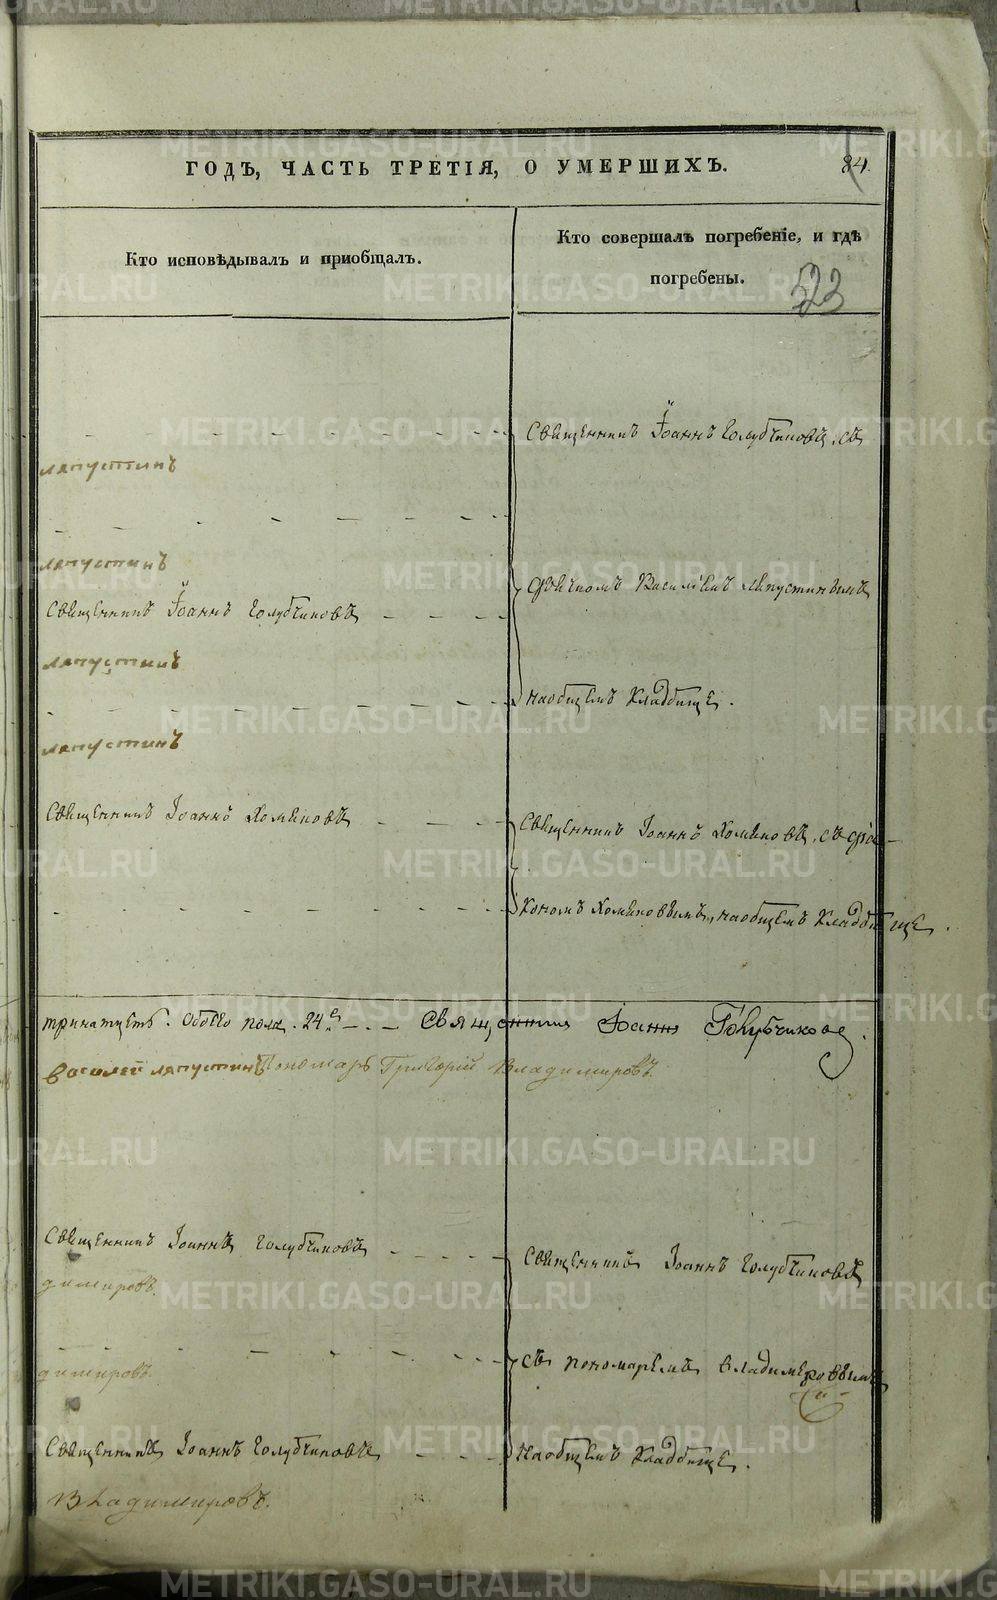 ГОДЪ, ЧАСТЬ ТРЕТІЯ, О УМЕРШИХЪ.
84.
Кто исповѣдывалъ и пріобщалъ.
Кто совершалъ погребеніе, и гдѣ
погребены.
523
Священникъ Іоаннъ Голубчиковъ, съ
ляпустинъ
ляпустинъ
дьячкомъ Василіемъ Ляпустинымъ
Священникъ Іоаннъ Голубчиковъ
ляпустинъ
наобщемъ кладбище.
ляпустинъ
Священникъ Іоаннъ Хомяковъ
Священникъ Іоаннъ Хомяковъ, съ дья-
кономъ Хомяковымъ, наобщемъ кладбище.
тринатцеть. Обоего пола. 24.е Священникъ Іоаннъ Голубчиковъ.
василей ляпустинъ Пономарь Григорій Владимировъ.
Священникъ Іоаннъ Голубчиковъ
Священникъ Іоаннъ Голубчиковъ
димировъ.
съ пономаремъ Владимеровымъ
димировъ.
Священникъ Іоаннъ Голубчиковъ
Наобщемъ кладбище.
Владимировъ.
METRIKI.GASO-URAL.RU